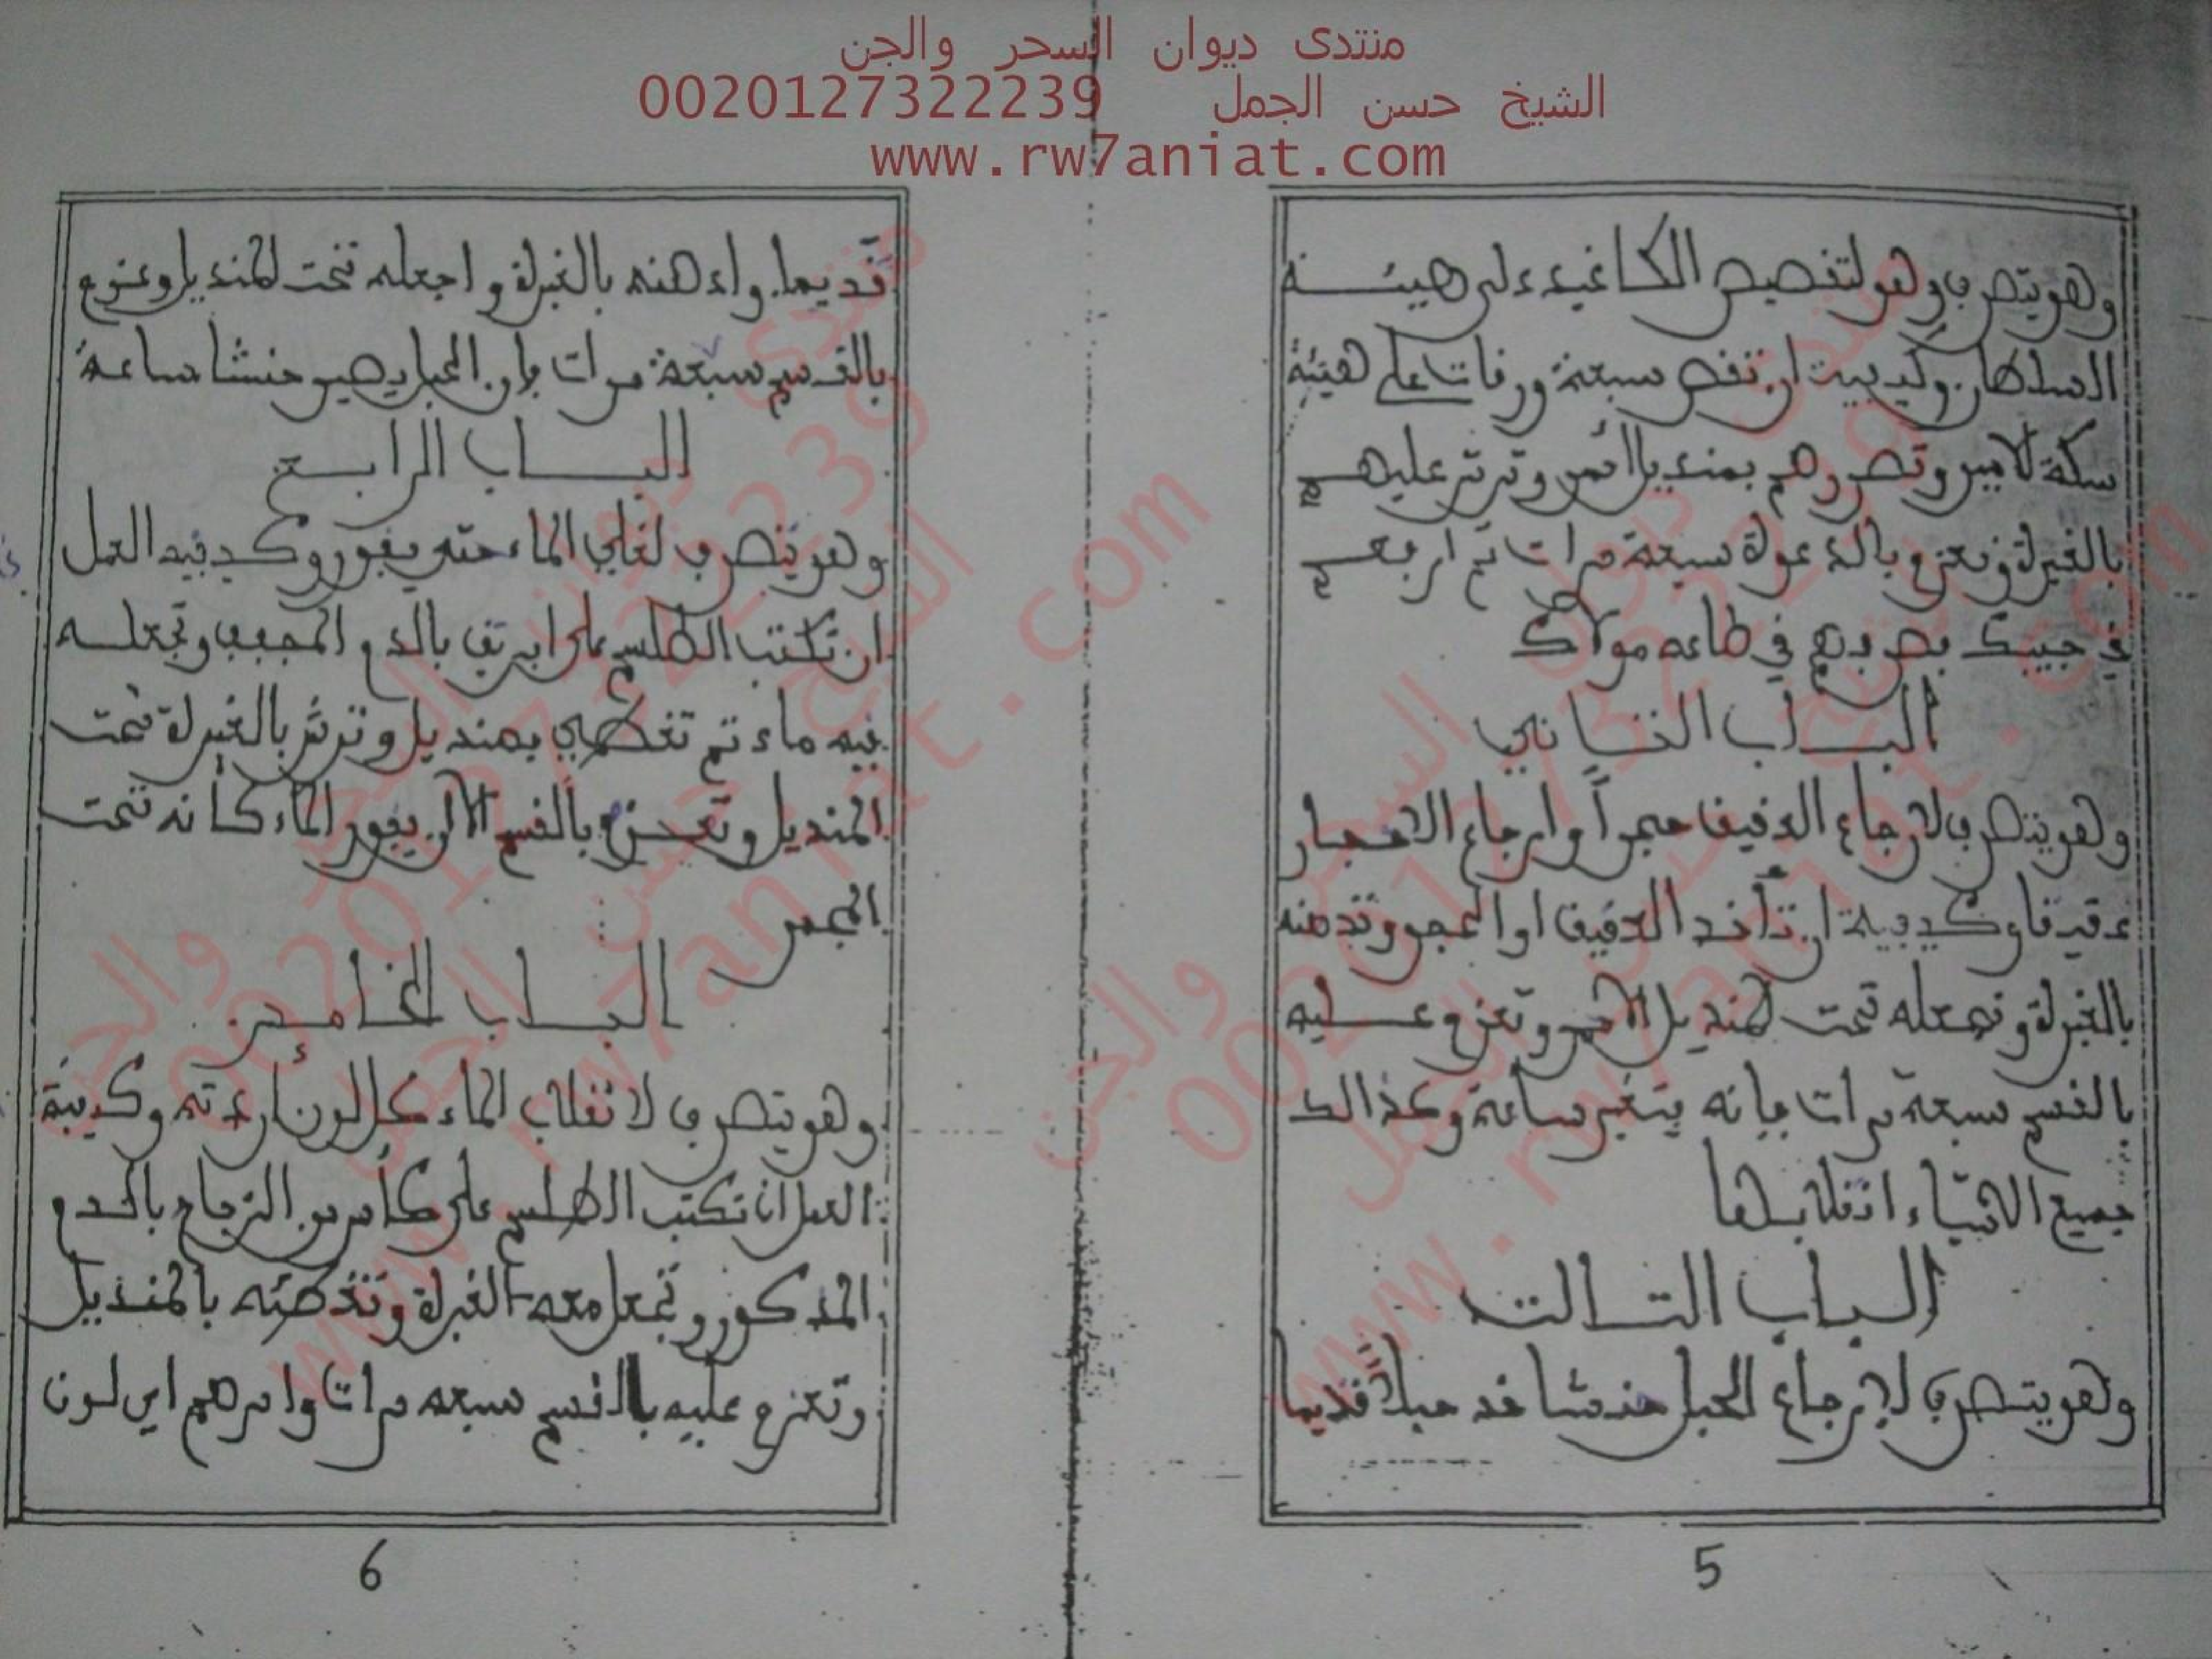 منتدى ديوان السحر والجن
الشيخ حسن الجمل 0020127322239
www.rw7aniat.com
وهو يتصرف وهو لتفصيص الكاغيد على هيئة
السلطان وكيفيت ان تقص سبعة ورقات على هيئة
سكة لامير وتصررهم بمنديل أحمر وترش عليهم
بالغبرة وتعزم بالدعوة سبعة مرات تم ارفعهم
في جيبك بصرفهم في طاعه مولاك
الباب الثاني
وهو يتصرف لارجاع الدقيق حجراً وارجاع الاحجار
دقيقا وكيفية ان تأخد الدقيق او الحجر وتدهنه
بالغبرة وتجعله تحت لمنديل الاحمر وتعزم عليه
بالقسم سبعة مرات فإنه يتغير ساعة وكذالك
جميع الاشياء انقلابها
الباب التالت
وهو يتصرف لإرجاع الحبل حنشا خد حبلاً قديما
5
قديما وادهنه بالغبرة واجعله تحت لمنديل وعزم
بالقسم سبعة مرات فإن الحبل يصير حنشا ساعة
الباب الرابع
وهو يتصرف لغلي الماء حتى يفور وكيفية العمل
ان تكتب الطلسم على ابريق بالدم المجفف وتجعله
فيه ماء تم تغطيه بمنديل وترش بالغبرة تحت
المنديل وتعزم بالقسم الا ان يفور الماء كأنه تحت
الجمر
الباب الخامس
وهو يتصرف لانقلاب الماء كل لون اردته وكيفية
العمل ان تكتب الطلسم على كأس من الزجاج بالدم
المذكور وتجعل معه الغبرة وتغطيه بالمنديل
وتعزم عليه بالقسم سبعه مرات وامرهم اي لون
6